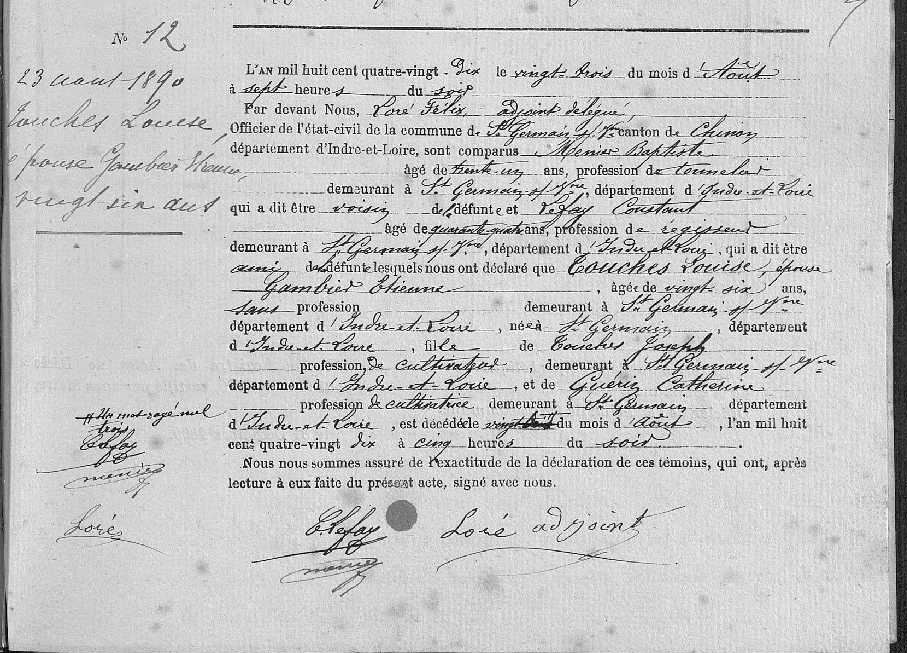 No 12
23 aout 1890
Touches Louise,
épouse Gambier Etienne,
vingt six ans
L'AN mil huit cent quatre-vingt-Dix le vingt-trois du mois d'Août
à sept heures du soir
Par devant Nous, Loré Félix, adjoint délégué,
Officier de l'état-civil de la commune de St Germain s/ Vne canton de Chinon
département d'Indre-et-Loire, sont comparus Menier Baptiste
âgé de trente-un ans, profession de tonnelier
demeurant à St Germain s/ Vne, département d'Indre-et-Loire
qui a dit être voisin de la défunte et Lefay Constant
âgé de quarante quatre ans, profession de regisseur
demeurant à St Germain s/ Vne, département d'Indre-et-Loire, qui a dit être
ami de la défunte lesquels nous ont déclaré que Touches Louise, épouse
Gambier Etienne, âgée de vingt six ans,
sans profession demeurant à St Germain s/ Vne
département d'Indre-et-Loire, née à St Germain, département
d'Indre-et-Loire, fille de Touches Joseph
profession de cultivateur, demeurant à St Germain s/ Vne
département d'Indre-et-Loire, et de Guerin Catherine
profession de cultivatrice demeurant à St Germain département
d'Indre-et-Loire, est décédée le vingt du mois d'Août, l'an mil huit
cent quatre-vingt dix à cinq heures du soir.
Nous nous sommes assuré de l'exactitude de la déclaration de ces témoins, qui ont, après
lecture à eux faite du présent acte, signé avec nous.
# Un mot rayé nul
trois
CLefay
menier
Loré
CLefay
Loré adjoint
menier